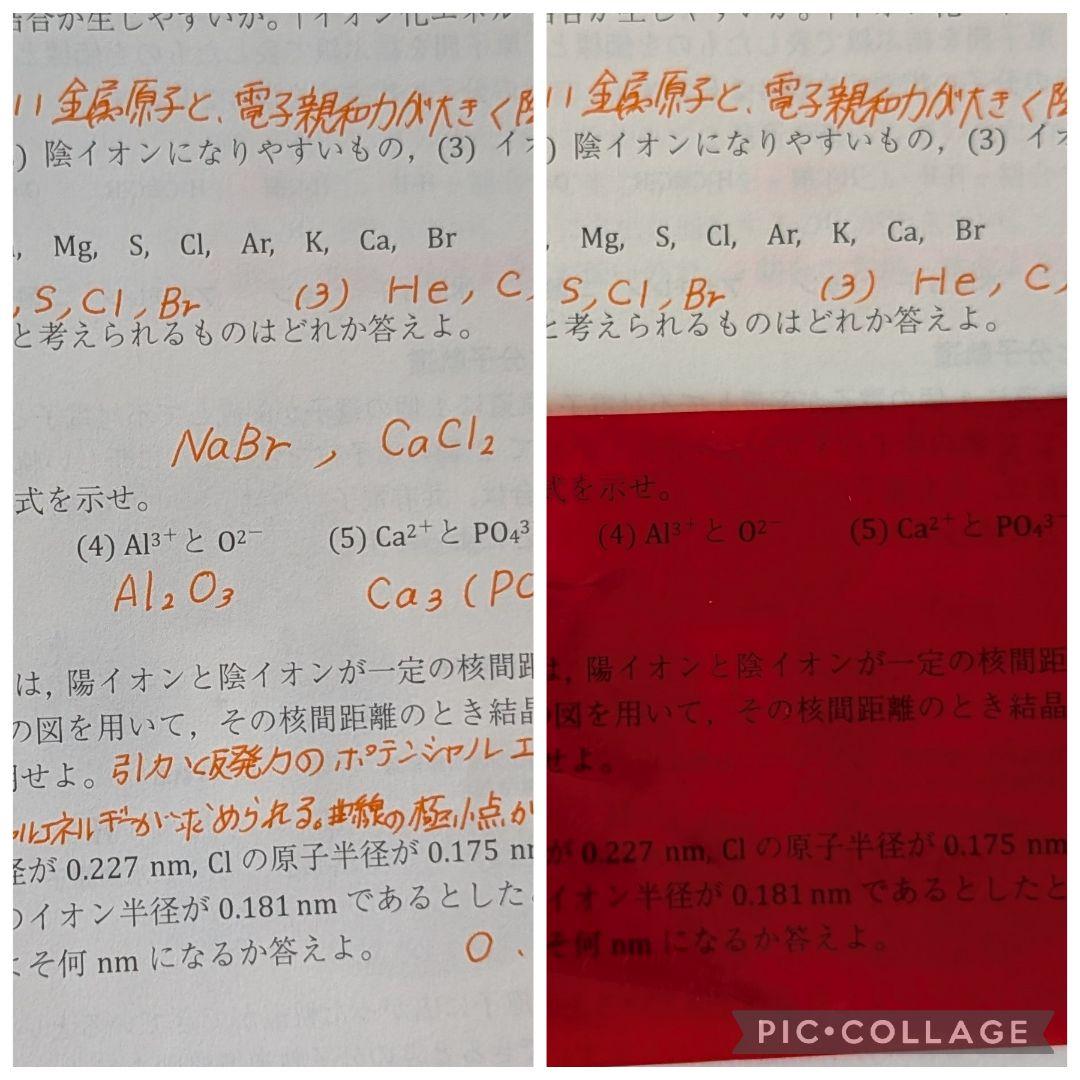 い金属原子と、電子親和力が大きく陰
) 陰イオンになりやすいもの, (3) イオ
, Mg, S, Cl, Ar, K, Ca, Br
, S, Cl, Br (3) He, C,
と考えられるものはどれか答えよ。
NaBr, CaCl₂
式を示せ。
(4) Al³⁺ と O²⁻ (5) Ca²⁺ と PO₄³⁻
Al₂O₃ Ca₃(PO
は, 陽イオンと陰イオンが一定の核間距
の図を用いて, その核間距離のとき結晶
せよ。引力と反発力のポテンシャルエ
ルエネルギーが求められる。曲線の極小点が
径が 0.227 nm, Cl の原子半径が 0.175 nm
のイオン半径が 0.181 nm であるとした
よそ何 nm になるか答えよ。 0.
い金属原子と、電子親和力が大きく陰
) 陰イオンになりやすいもの, (3) イオ
, Mg, S, Cl, Ar, K, Ca, Br
S, Cl, Br (3) He, C,
と考えられるものはどれか答えよ。
式を示せ。
(4) Al³⁺ と O²⁻ (5) Ca²⁺ と PO₄³⁻
は, 陽イオンと陰イオンが一定の核間距
の図を用いて, その核間距離のとき結晶
せよ。
が 0.227 nm, Cl の原子半径が 0.175 nm
イオン半径が 0.181 nm であるとしたと
そ何 nm になるか答えよ。
PIC•COLLAGE